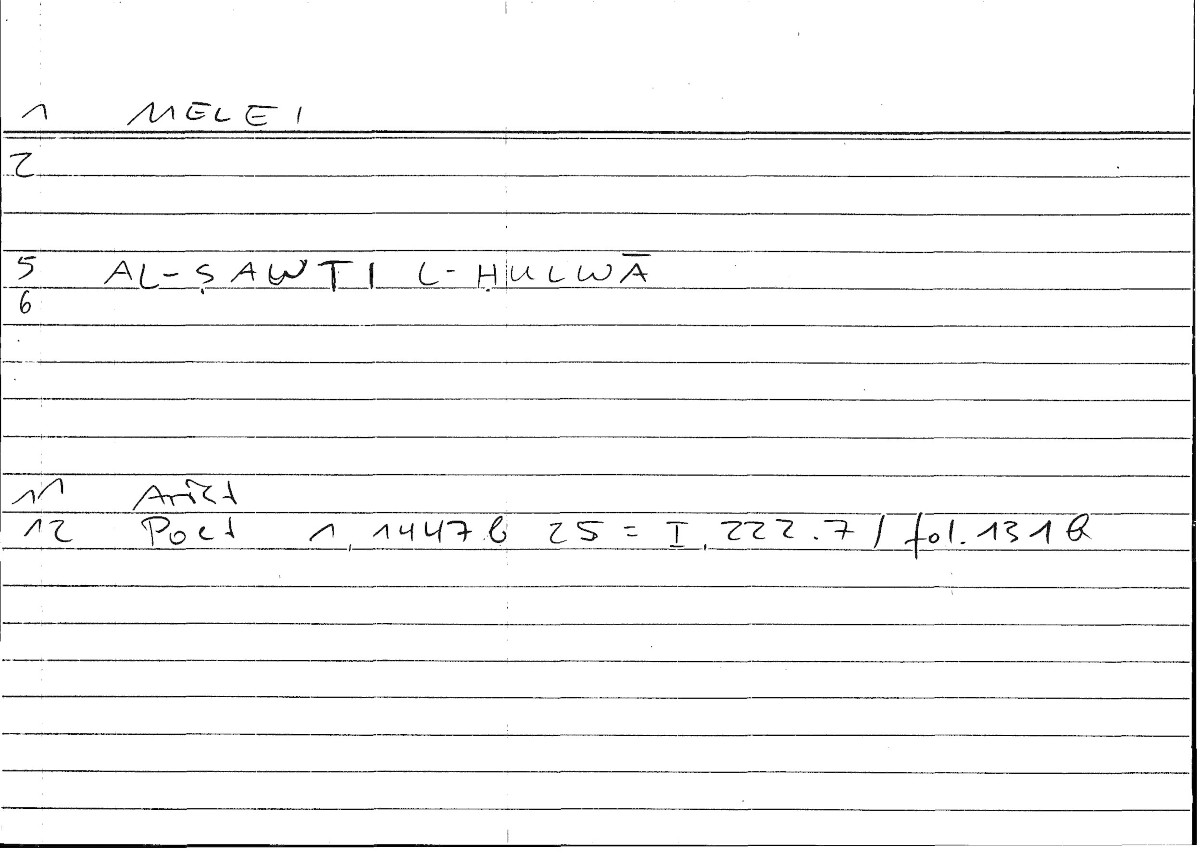 1 MELEI
2
5 AL-ṢAWTI L-ḤULWĀ
6
11 Arist
12 Poet 1, 1447b 25 = I, 222.7 / fol. 131b